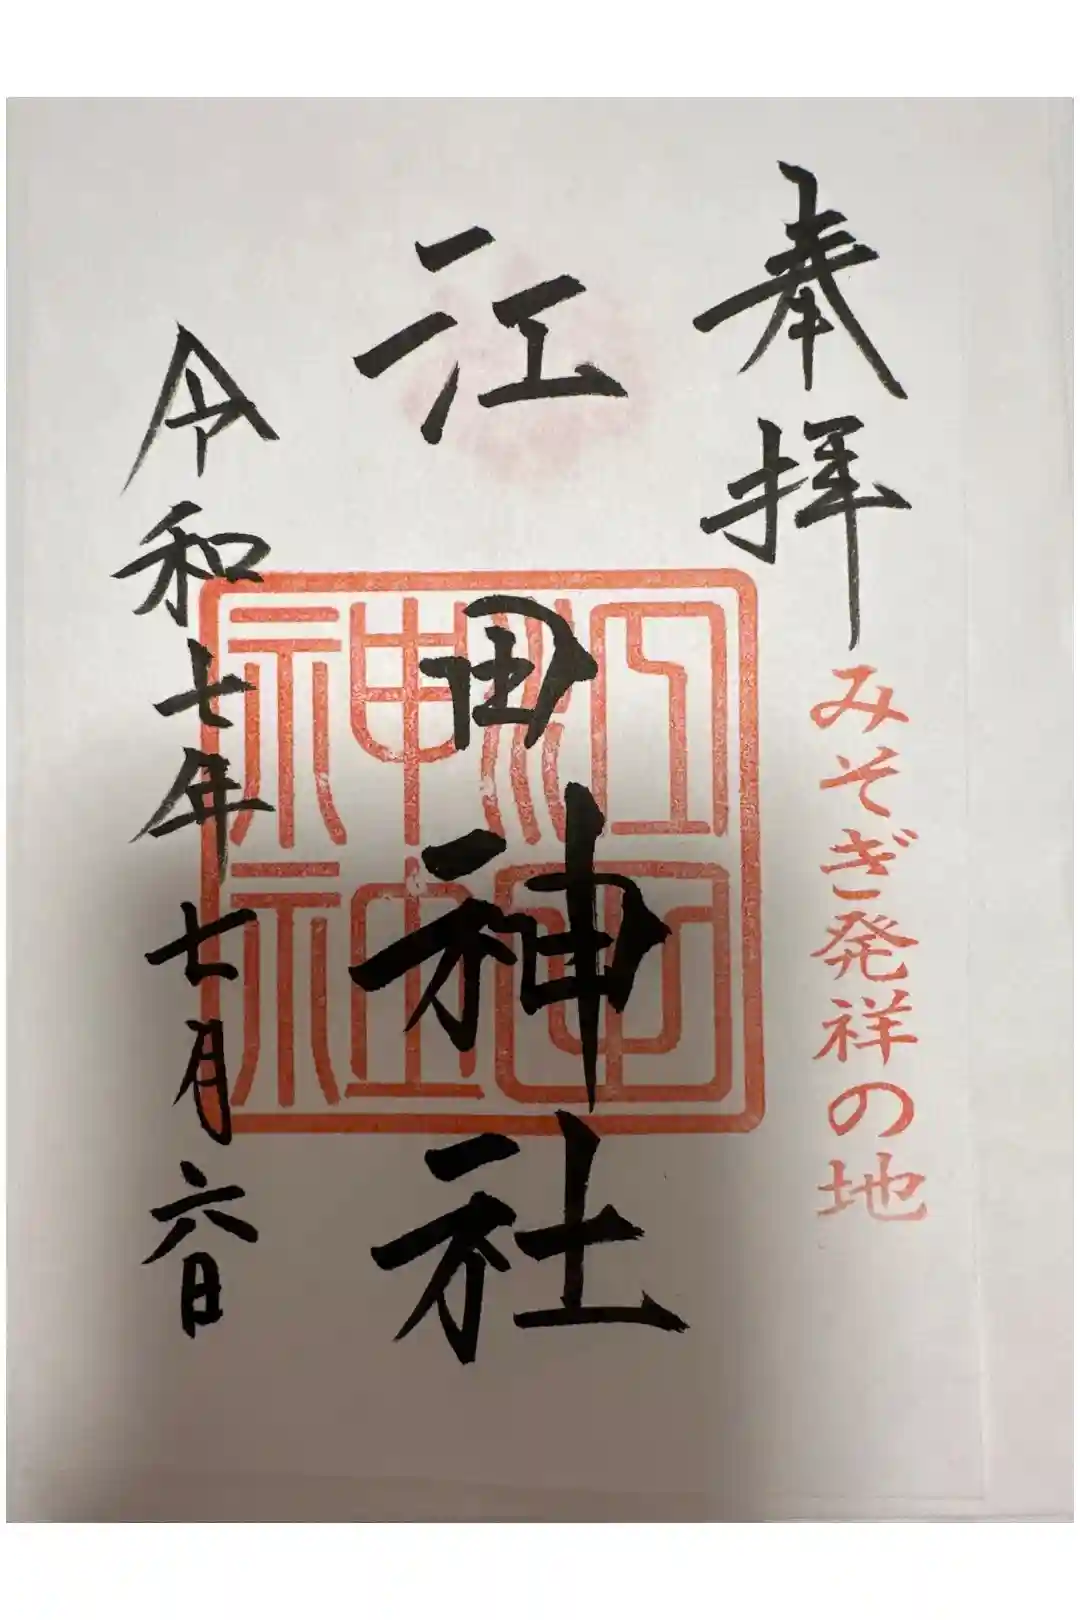 奉拝
みそぎ発祥の地
江田神社
江田神社
令和七年七月六日